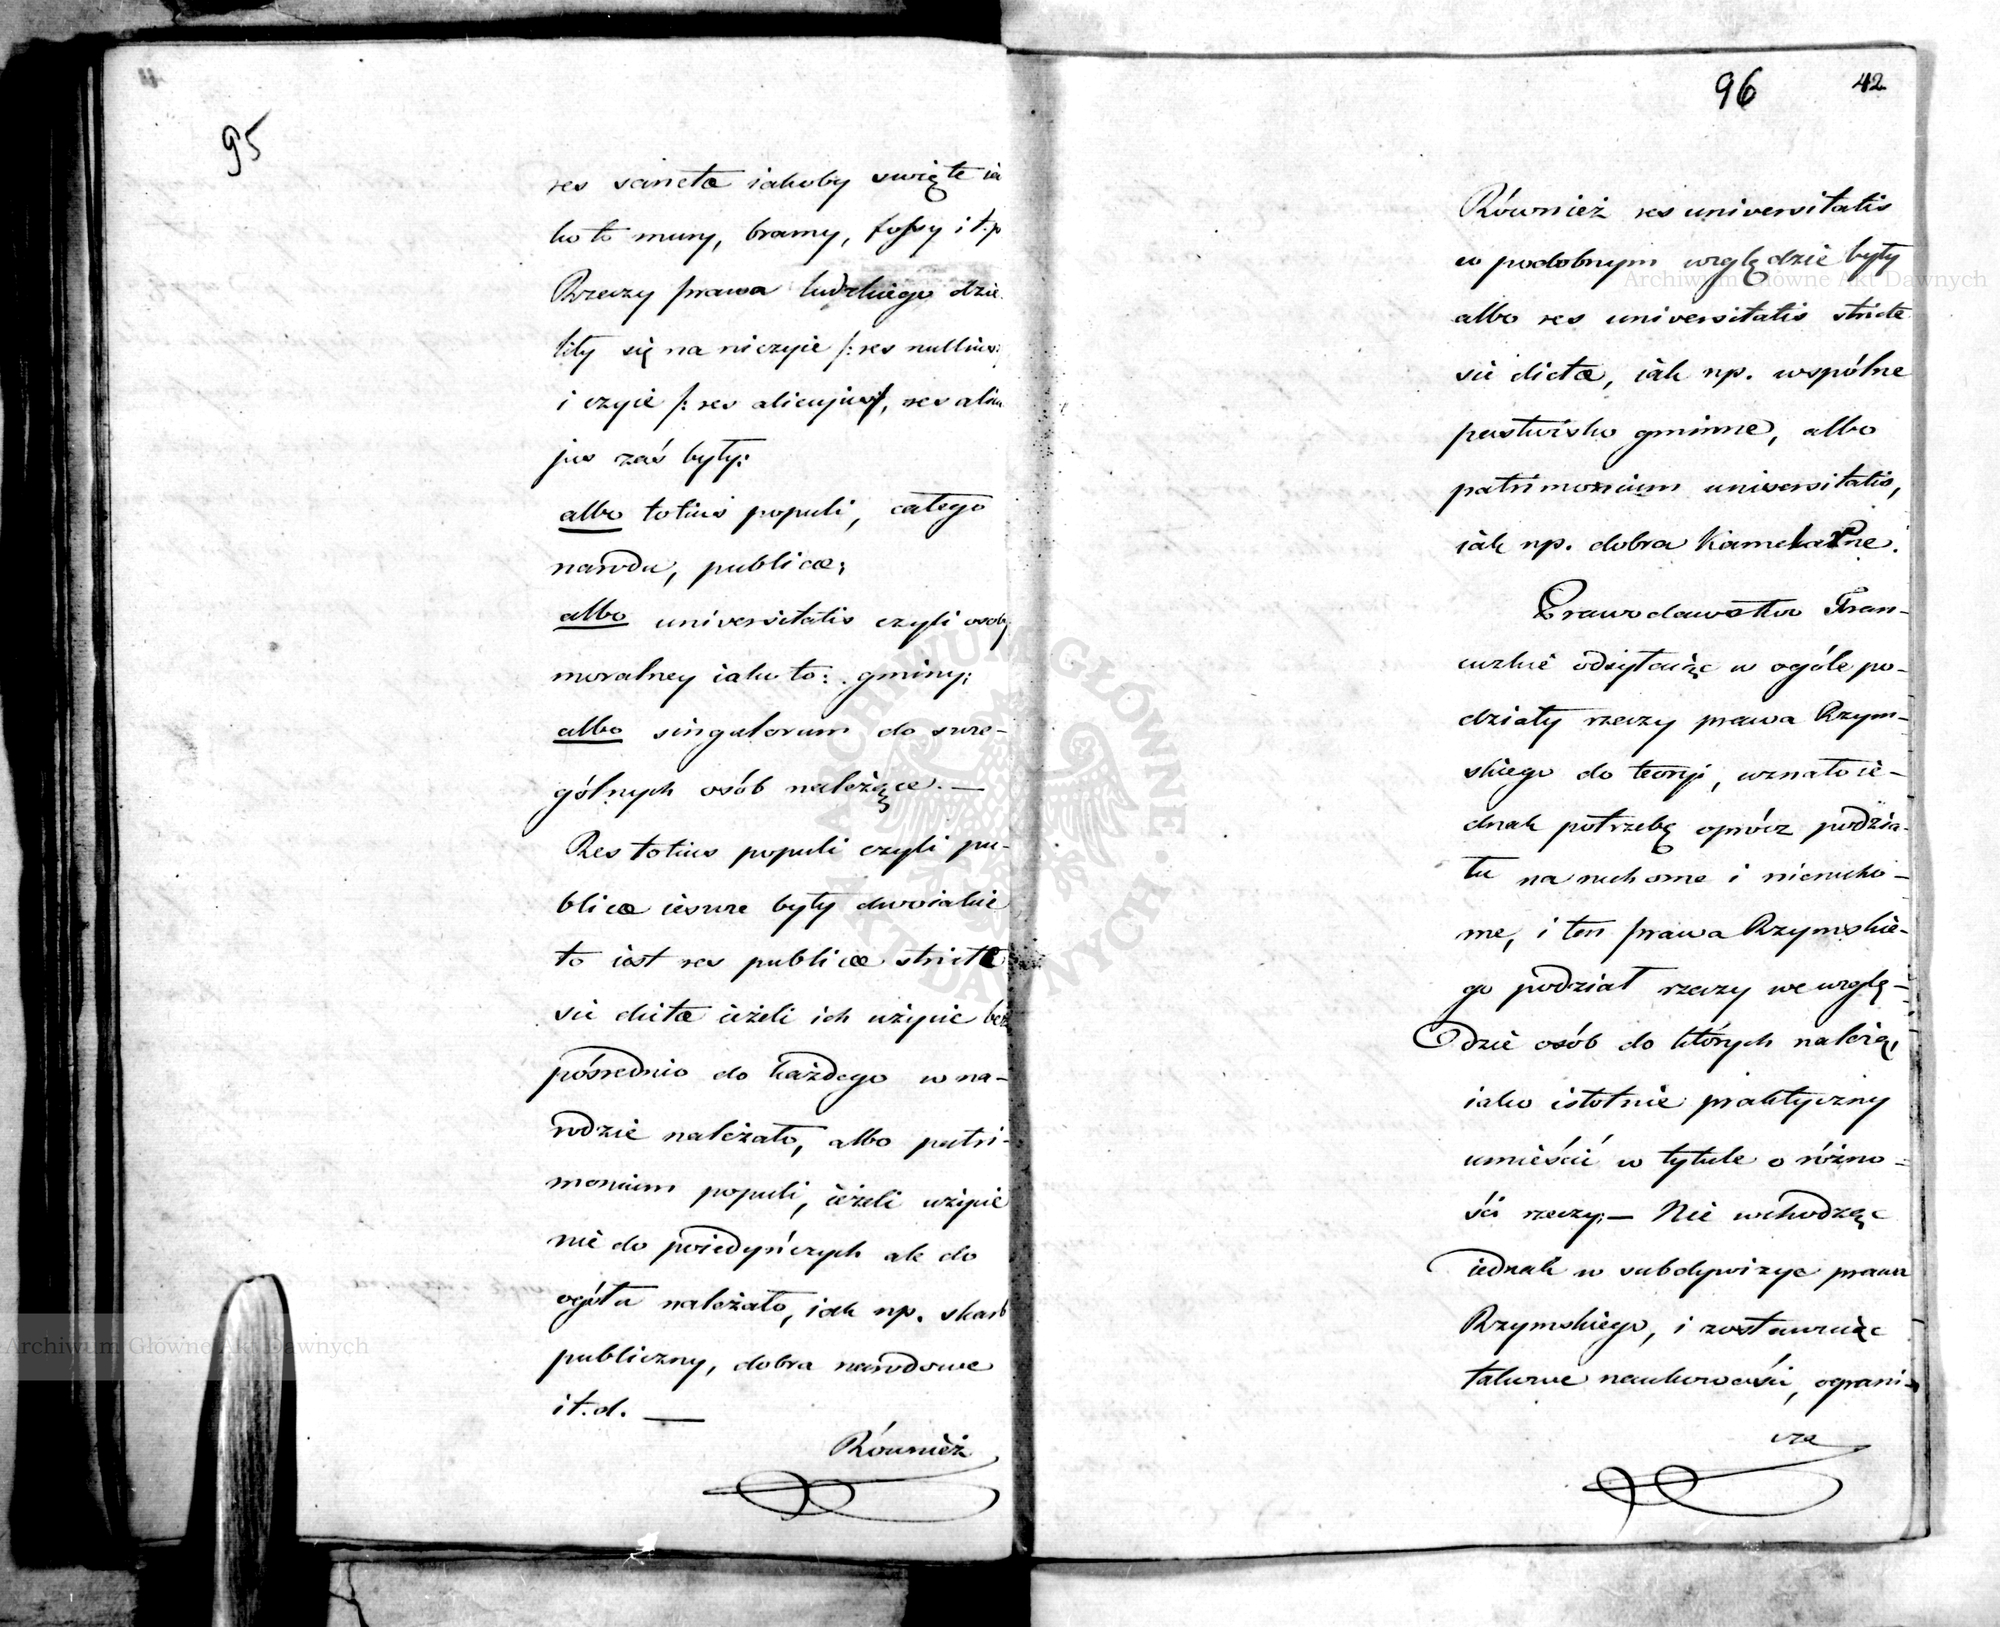 95
res sanctæ iakoby swięte ia
ko to mury, bramy, fossy i t.p
Rzeczy prawa ludzkiego dzie
liły się na niczyie /: res nullius:
i czyie /: res alicujus/, res alicu
jus zaś były:
albo totius populi, całego
narodu, publicæ;
albo universitatis czyli osoby
moralney iako to: gminy;
albo singulorum do szcze-
gólnych osób należące. —
Res totius populi czyli pu-
blicæ ieszcze były dwoiakie
to iest res publicæ stricte
sic dictæ ieżeli ich użycie bez
pośrednio do każdego w na-
rodzie należało, albo patri-
monium populi, ieżeli użycie
nie do poiedyńczych ale do
ogółu należało, iak np. skarb
publiczny, dobra narodowe
i t. d. —
Również
96
42
Również res universitatis
w podobnym względzie były
albo res universitatis stricte
sic dictæ, iak np. wspólne
pastwisko gminne, albo
patrimonium universitatis,
iak np. dobra Kameralne.
Prawodawstwo Fran-
cuzkie odsyłaiąc w ogóle po-
działy rzeczy prawa Rzym-
skiego do teoryi, uznało ie-
dnak potrzebę oprócz podzia-
łu na ruchome i nierucho-
me, i ten prawa Rzymskie-
go podział rzeczy we wzglę-
dzie osób do których należą,
iako istotnie praktyczny
umieścić w tytule o różno-
ści rzeczy; — Nie wchodząc
iednak w subdywizye prawa
Rzymskiego, i zostawuiąc
takowe naukowości, ograni-
cza
Archiwum Główne Akt Dawnych
Archiwum Główne Akt Dawnych
ARCHIWUM GŁÓWNE AKT DAWNYCH